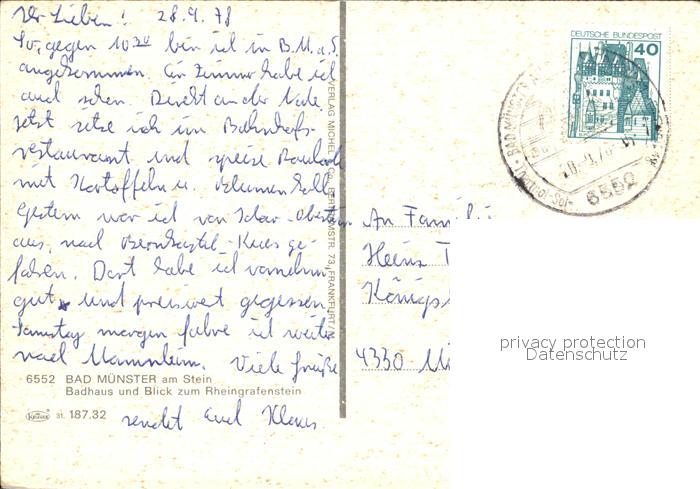 Ihr Lieben! 28.9.78
So, gegen 10 30 bin ich in B.M.a.S.
angekommen. Ein Zimmer habe ich
auch schon. Direkt an der Nahe.
Jetzt sitze ich im Bahnhofs-
restaurant und speise
mit Kartoffeln u. Blumenkohl
Gestern war ich von Idar-Oberstein
aus, nach Bernkastel-Kues ge-
fahren. Dort habe ich vornehm
gut und preiswert gegessen
Samstag morgen fahre ich weiter
nach Mannheim. Viele Grüße
6552 BAD MÜNSTER am Stein
Badhaus und Blick zum Rheingrafenstein
31. 187.32
sendet Euch Klaus
VERLAG MICHEL & CO. BERTRAMSTR. 73, FRANKFURT/M.
DEUTSCHE BUNDESPOST
40
BAD MÜNSTER A.
6552
An Fam
Heinz T
Königs
4330 Mü
privacy protection
Datenschutz